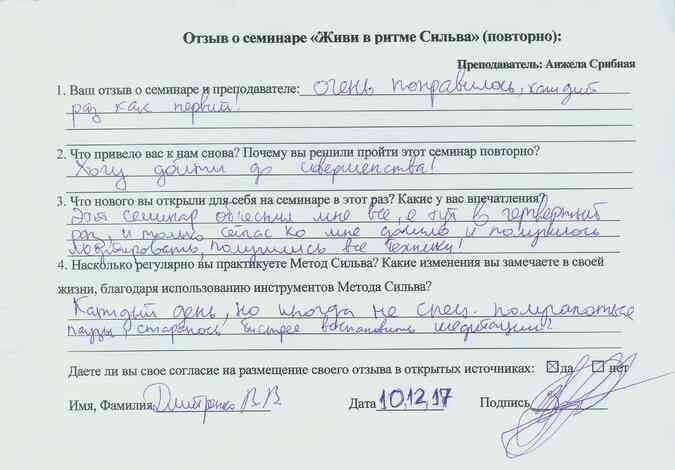 Отзыв о семинаре «Живи в ритме Сильва» (повторно):
Преподаватель: Анжела Срибная
1. Ваш отзыв о семинаре и преподавателе: очень понравилось, каждый
раз как первый!
2. Что привело вас к нам снова? Почему вы решили пройти этот семинар повторно?
Хочу дойти до совершенства!
3. Что нового вы открыли для себя на семинаре в этот раз? Какие у вас впечатления?
Этот семинар объяснил мне все, я тут в четвертый
раз, и только сейчас ко мне дошло и получилось
, получились все техники!
4. Насколько регулярно вы практикуете Метод Сильва? Какие изменения вы замечаете в своей
жизни, благодаря использованию инструментов Метода Сильва?
Каждый день, но иногда не спец. получаются
паузы, стараюсь быстрее востановить медитации!
Даете ли вы свое согласие на размещение своего отзыва в открытых источниках: да нет
Имя, Фамилия Дмитренко В.В Дата 10.12.17 Подпись